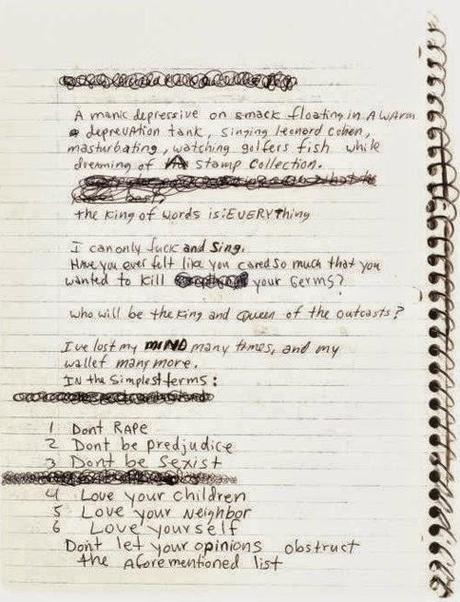 A manic depressive on smack floating in A WArm
a deprevAtion tank, singing leonard cohen,
masturbating, watching golfers fish while
dreaming of A stamp collection.
the King of words is: EVERYthing
I can only fuck and Sing.
Have you ever felt like you cared so much that you
wanted to kill your Germs?
who will be the King and Queen of the outcasts?
I've lost my MIND many times, and my
wallet many more.
IN the Simplest terms:
1 Dont RAPE
2 Dont be predjudice
3 Dont be Sexist
4 Love your children
5 Love your Neighbor
6 Love yourself
Don't let your opinions obstruct
the Aforementioned list